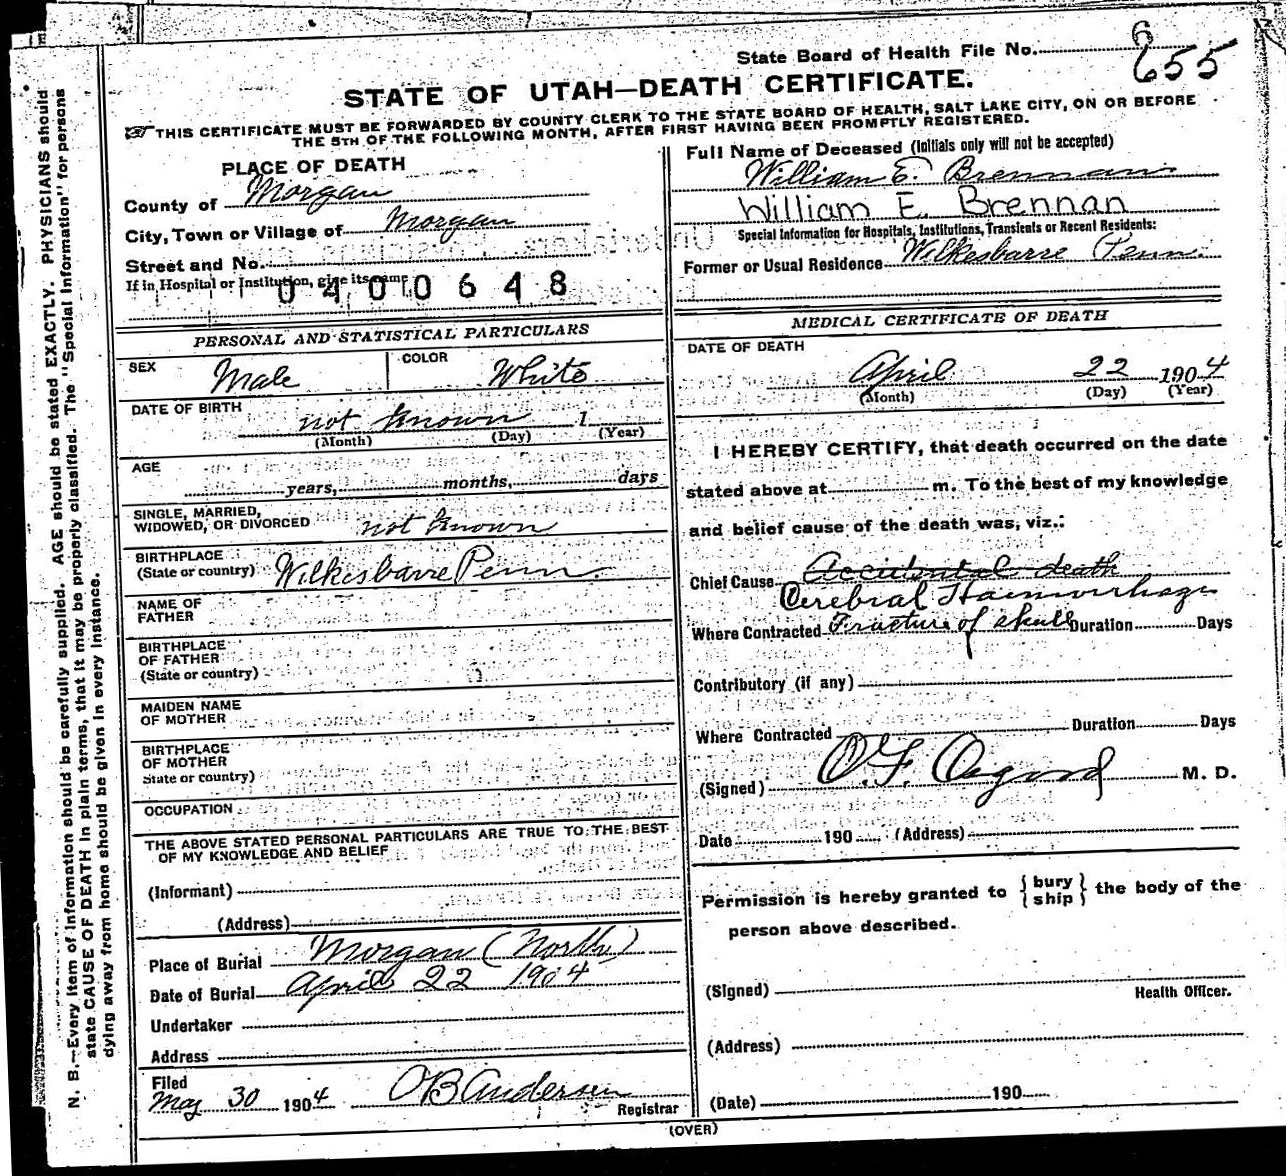 State Board of Health File No. 6
655
STATE OF UTAH—DEATH CERTIFICATE.
THIS CERTIFICATE MUST BE FORWARDED BY COUNTY CLERK TO THE STATE BOARD OF HEALTH, SALT LAKE CITY, ON OR BEFORE
THE 5TH OF THE FOLLOWING MONTH, AFTER FIRST HAVING BEEN PROMPTLY REGISTERED.
PLACE OF DEATH
County of Morgan
City, Town or Village of Morgan
Street and No.
If in Hospital or Institution, give its name
0400648
Full Name of Deceased (Initials only will not be accepted)
William E. Brennan
William E. Brennan
Special Information for Hospitals, Institutions, Transients or Recent Residents:
Former or Usual Residence Wilkesbarre Penn.
PERSONAL AND STATISTICAL PARTICULARS
SEX Male COLOR White
DATE OF BIRTH not known 1
(Month) (Day) (Year)
AGE
years, months, days
SINGLE, MARRIED,
WIDOWED, OR DIVORCED not known
BIRTHPLACE
(State or country) Wilkesbarre Penn.
NAME OF
FATHER
BIRTHPLACE
OF FATHER
(State or country)
MAIDEN NAME
OF MOTHER
BIRTHPLACE
OF MOTHER
State or country)
OCCUPATION
THE ABOVE STATED PERSONAL PARTICULARS ARE TRUE TO THE BEST
OF MY KNOWLEDGE AND BELIEF
(Informant)
(Address)
Place of Burial Morgan (North)
Date of Burial April 22 1904
Undertaker
Address
Filed
May 30 1904 O B Anderson
Registrar
MEDICAL CERTIFICATE OF DEATH
DATE OF DEATH
April 22 1904
(Month) (Day) (Year)
I HEREBY CERTIFY, that death occurred on the date
stated above at m. To the best of my knowledge
and belief cause of the death was, viz.:
Chief Cause Accidental death
Cerebral Haemorrhage
Where Contracted Fracture of skull Duration Days
Contributory (if any)
Where Contracted Duration Days
(Signed) O.F. Osgood M. D.
Date 190 (Address)
Permission is hereby granted to {bury
ship} the body of the
person above described.
(Signed)
Health Officer.
(Address)
(Date) 190
(OVER)
N. B.—Every item of information should be carefully supplied. AGE should be stated EXACTLY. PHYSICIANS should
state CAUSE OF DEATH in plain terms, that it may be properly classified. The "Special Information" for persons
dying away from home should be given in every instance.